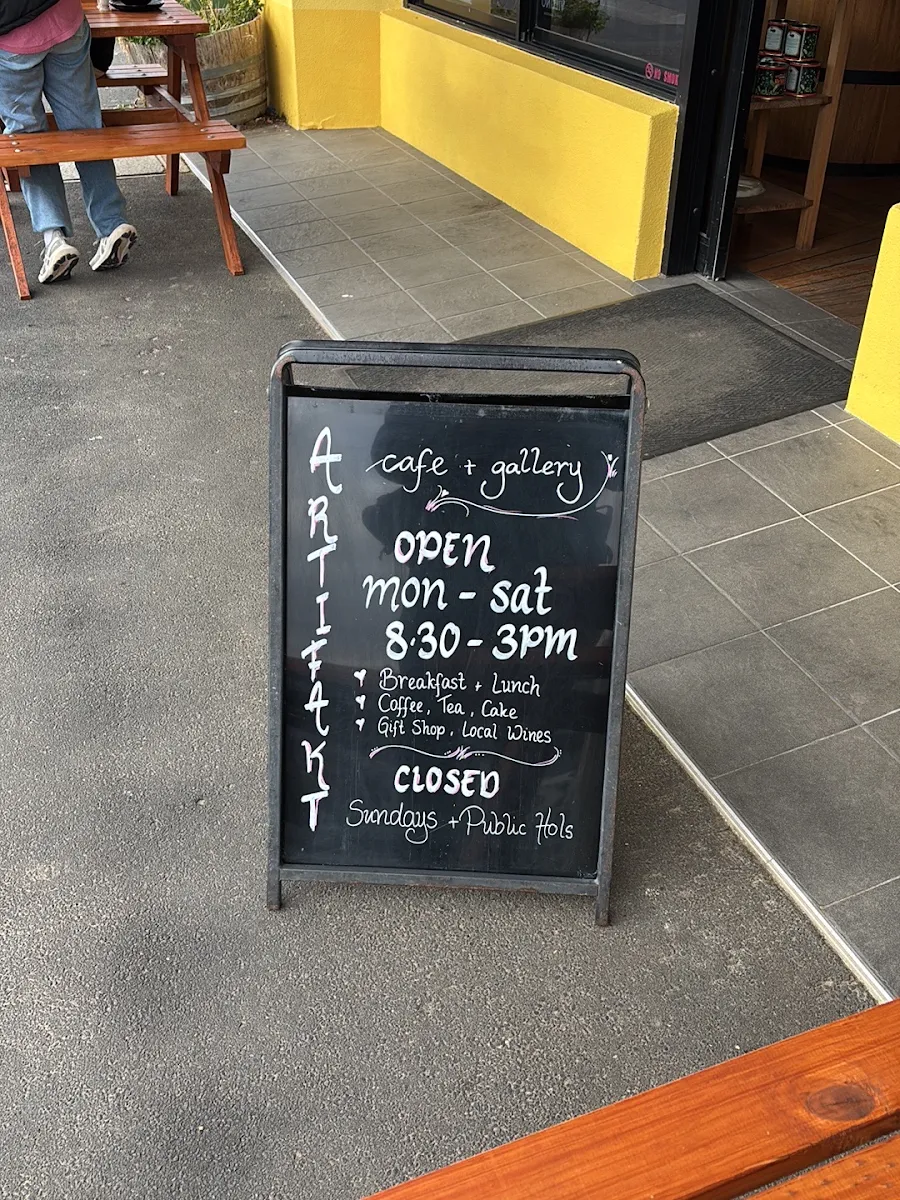 ARTIFAKT
cafe + gallery
OPEN
mon - sat
8·30 - 3PM
Breakfast + Lunch
Coffee, Tea, Cake
Gift Shop, Local Wines
CLOSED
Sundays + Public Hols
NO SMOK